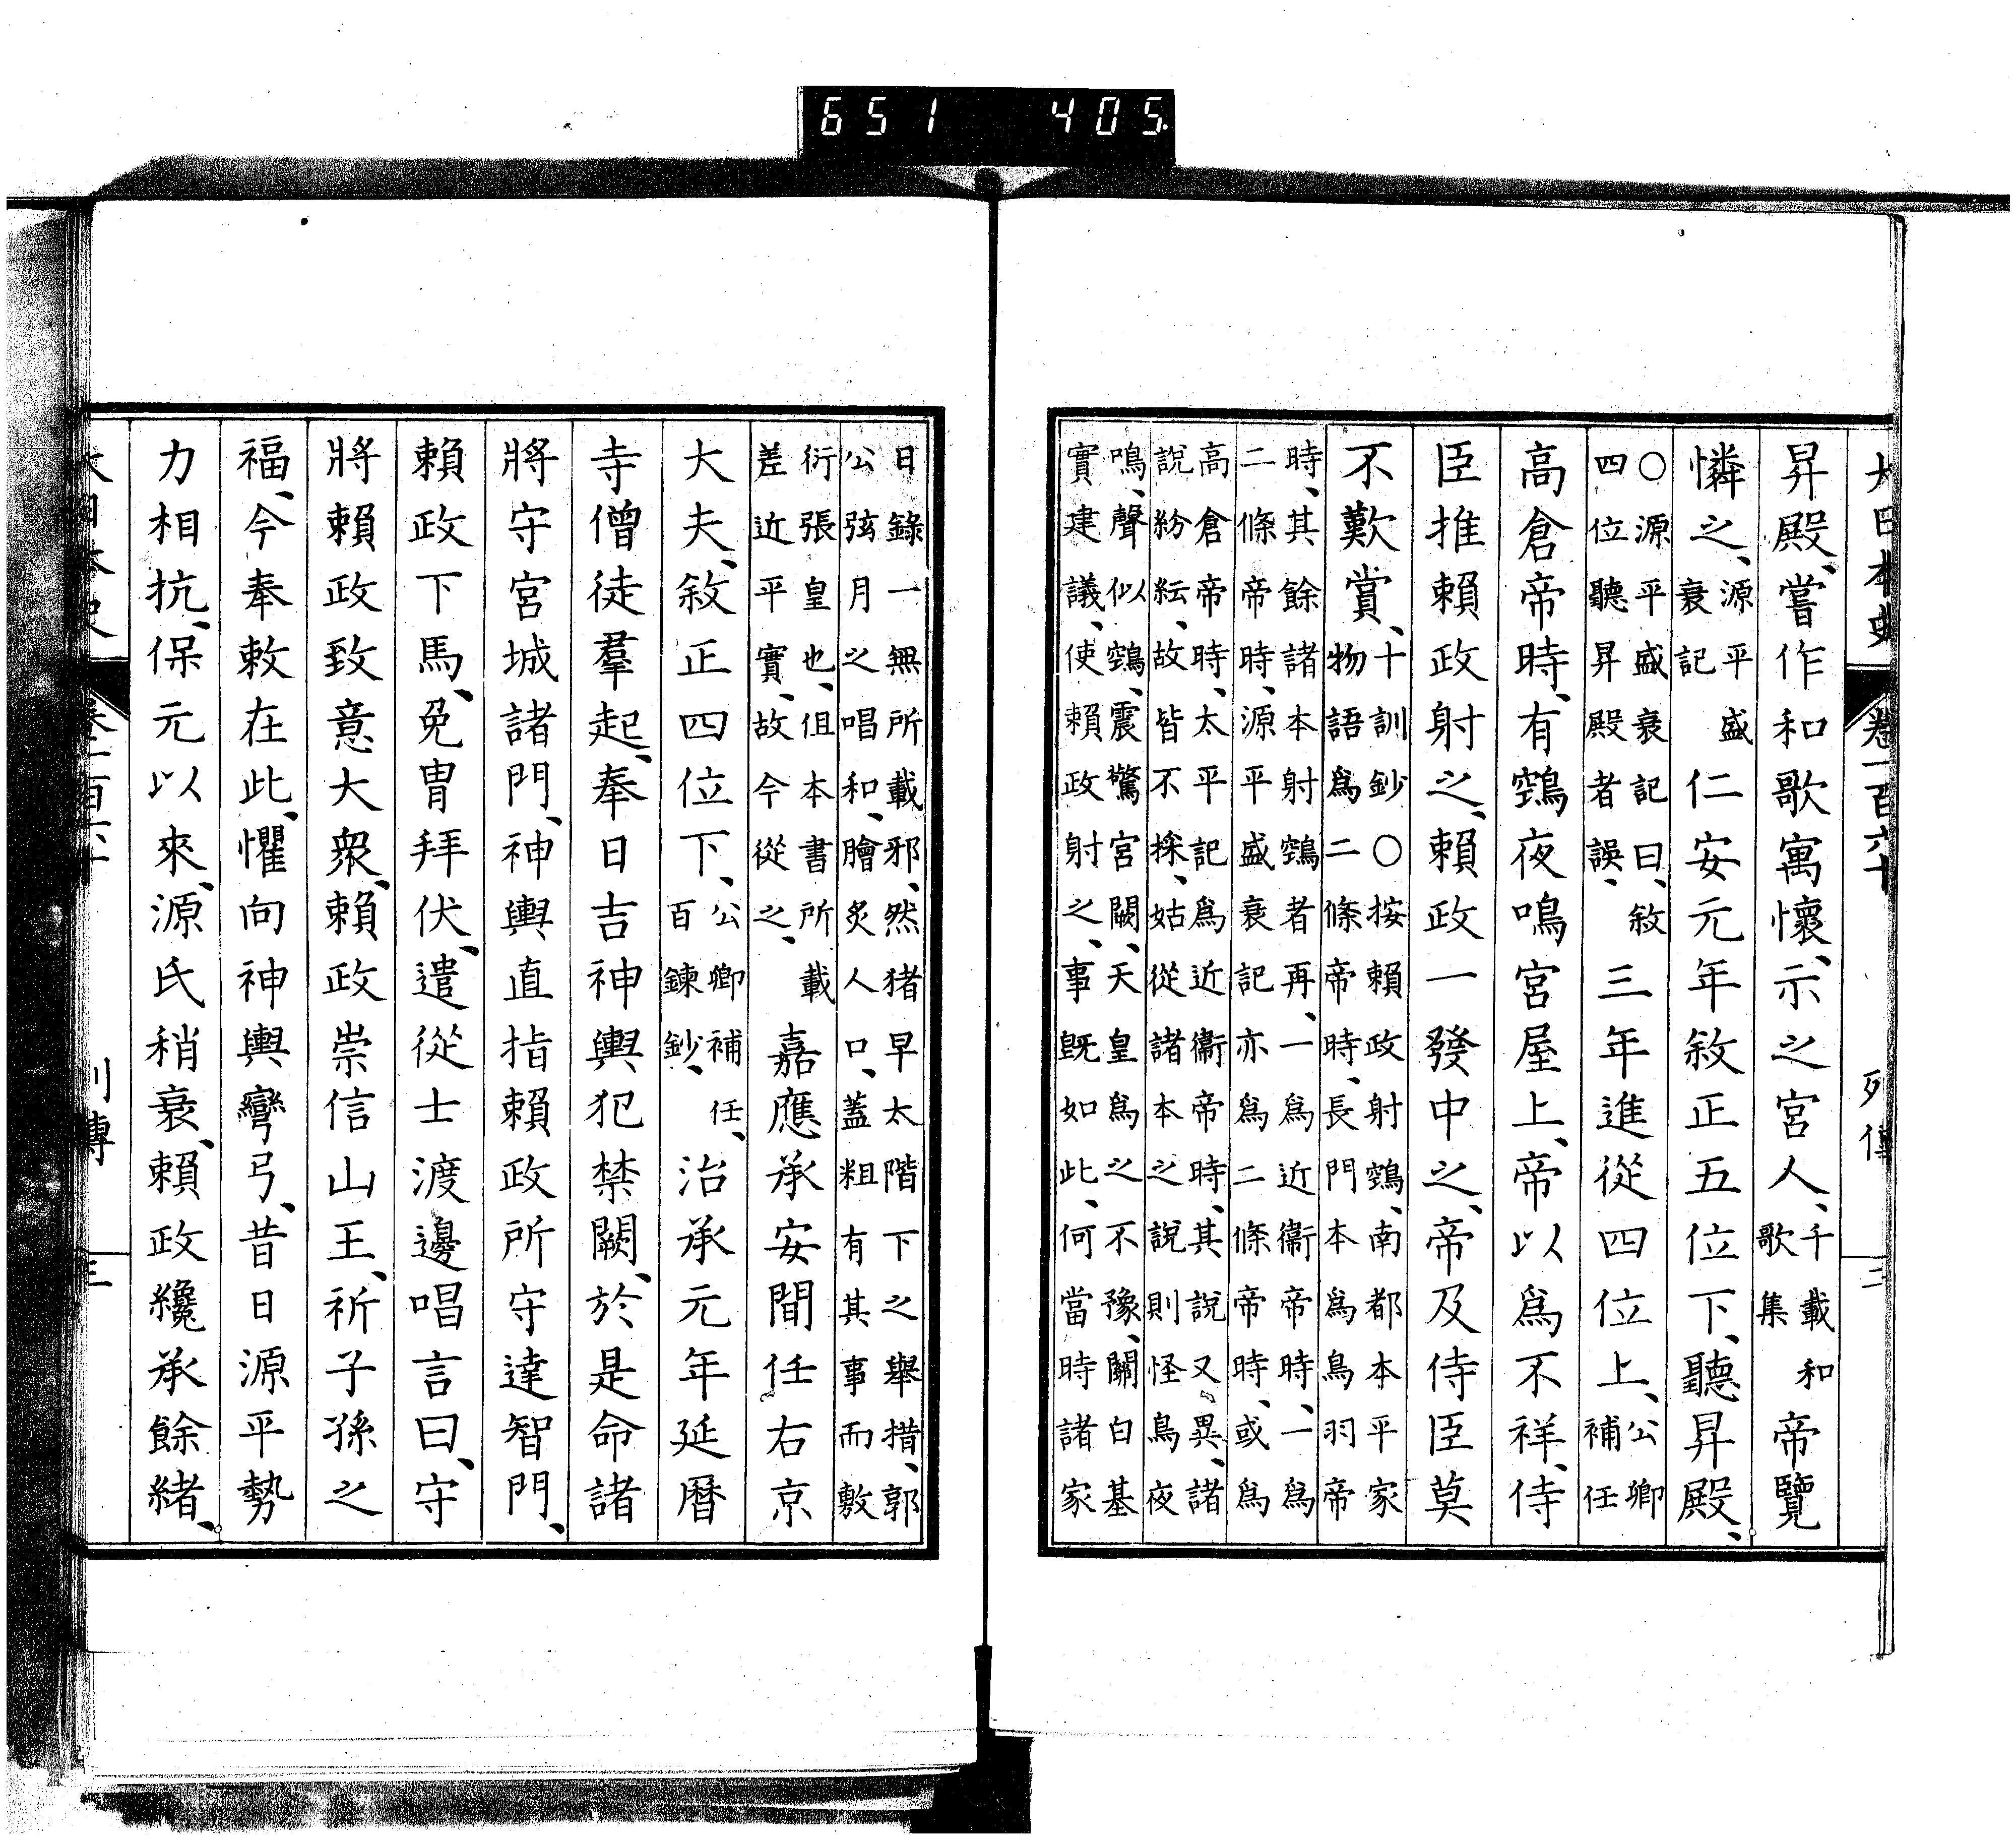 651 405
大日本史 卷一百六十 列傳 三
昇殿、嘗作和歌寓懷、示之宮人、千載和歌集帝覽
憐之、源平盛衰記仁安元年敘正五位下、聽昇殿、
○源平盛衰記曰、敘四位聽昇殿者誤、三年進從四位上、公卿補任
高倉帝時、有鵼夜鳴宮屋上、帝以爲不祥、侍
臣推賴政射之、賴政一發中之、帝及侍臣莫
不歎賞、十訓鈔○按賴政射鵼、南都本平家物語爲二條帝時、長門本爲鳥羽帝
時、其餘諸本射鵼者再、一爲近衞帝時、一爲二條帝時、源平盛衰記亦爲二條帝時、或爲
高倉帝時、太平記爲近衞帝時、其說又異、諸說紛紜、故皆不採、姑從諸本之說則怪鳥夜
鳴、聲似鵼、震驚宮闕、天皇爲之不豫、關白基實建議、使賴政射之、事旣如此、何當時諸家
日錄一無所載邪、然猪早太階下之舉措、郭公弦月之唱和、膾炙人口、蓋粗有其事而敷
衍張皇也、但本書所載差近平實、故今從之、嘉應承安間任右京
大夫、敘正四位下、公卿補任、百鍊鈔、治承元年延曆
寺僧徒羣起、奉日吉神輿犯禁闕、於是命諸
將守宮城諸門、神輿直指賴政所守達智門、
賴政下馬、免冑拜伏、遣從士渡邊唱言曰、守
將賴政致意大衆、賴政崇信山王、祈子孫之
福、今奉敕在此、懼向神輿彎弓、昔日源平勢
力相抗、保元以來、源氏稍衰、賴政纔承餘緖、
大日本史 卷一百六十 列傳 三